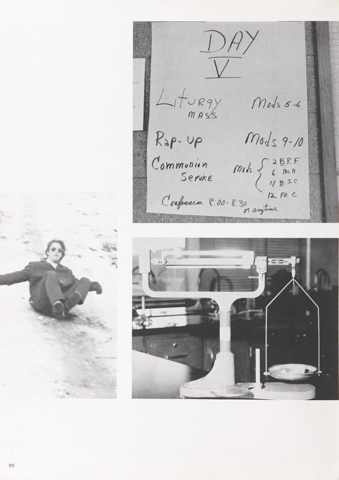 DAY
V
Liturgy Mods 5-6
MASS
Rap-up Mods 9-10
Communion Mods 2 B.R.F
Service 6
11 B.I.C
12 F.D.C
Confession 8:00-8:30
or anytime